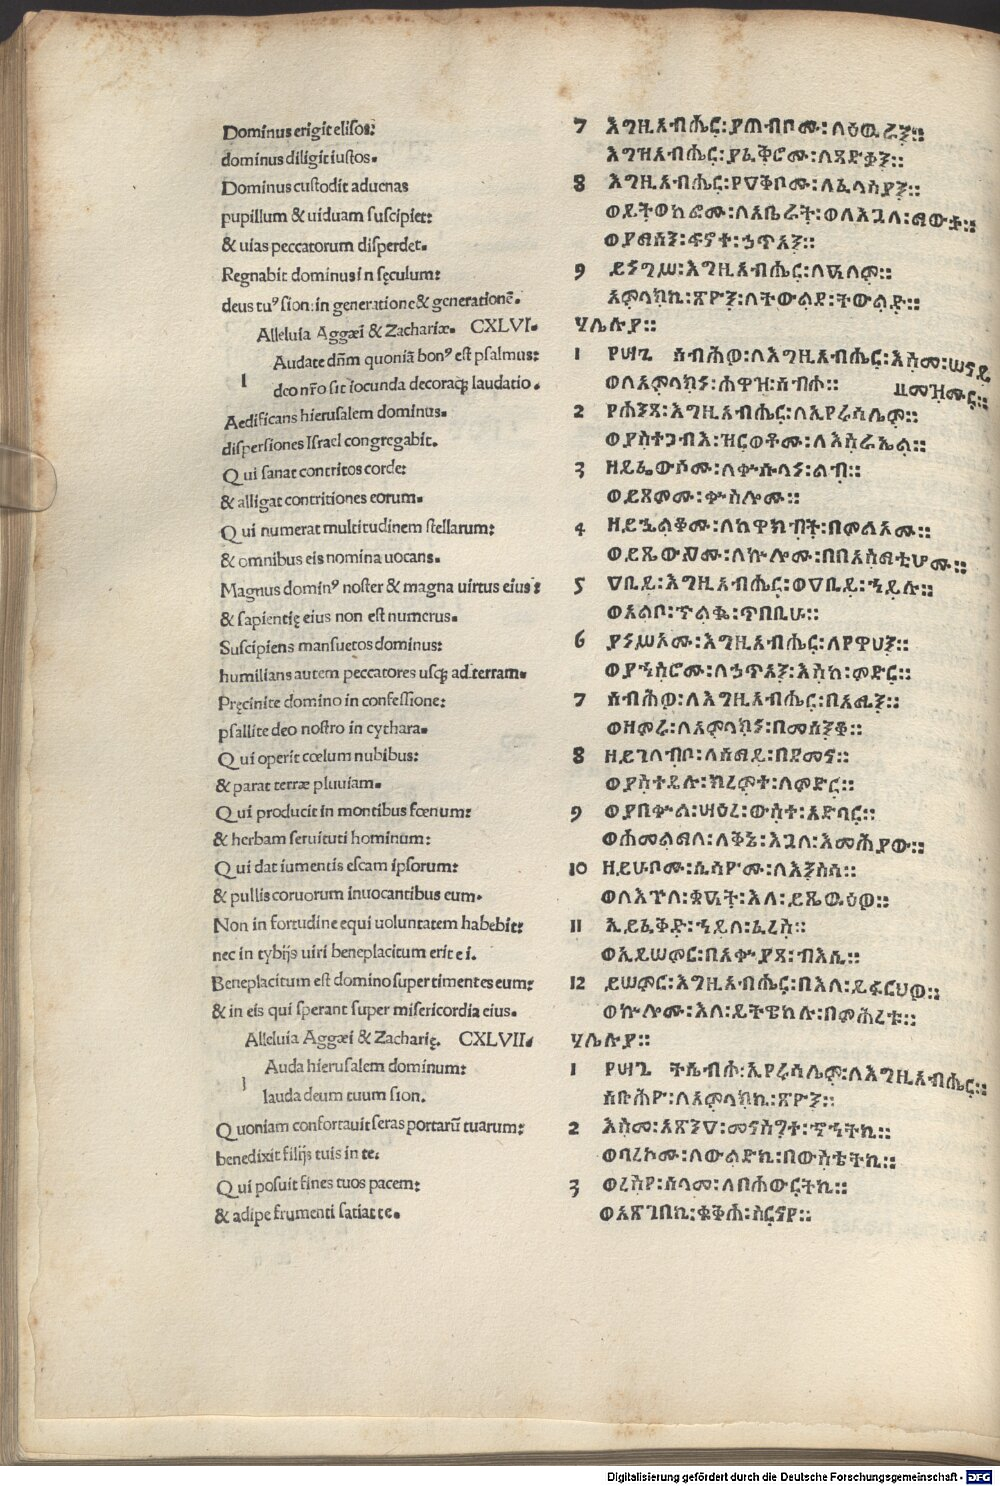 Dominus erigit elisos:
dominus diligit iustos.
Dominus custodit aduenas
pupillum & uiduam suscipiet:
& uias peccatorum disperdet.
Regnabit dominus in sęculum:
deus tuꝰ sion: in generatione & generationē.
Alleluia Aggæi & Zachariæ. CXLVI.
Audate dñm quoniā bonꝰ est psalmus:
1 deo nr̃o sit iocunda decoraq; laudatio.
Aedificans hierusalem dominus.
dispersiones Israel congregabit.
Qui sanat contritos corde:
& alligat contritiones eorum.
Qui numerat multitudinem stellarum:
& omnibus eis nomina uocans.
Magnus dominꝰ noster & magna uirtus eius:
& sapientię eius non est numerus.
Suscipiens mansuetos dominus:
humilians autem peccatores usq; ad terram.
Pręcinite domino in confessione:
psallite deo nostro in cythara.
Qui operit cœlum nubibus:
& parat terræ pluuiam.
Qui producit in montibus fœnum:
& herbam seruituti hominum:
Qui dat iumentis escam ipsorum:
& pullis coruorum inuocantibus eum.
Non in fortudine equi uoluntatem habebit:
nec in tybijs uiri beneplacitum erit ei.
Beneplacitum est domino super timentes eum:
& in eis qui sperant super misericordia eius.
Alleluia Aggæi & Zacharię. CXLVII.
Auda hierusalem dominum:
1 lauda deum tuum sion.
Quoniam confortauit seras portarū tuarum:
benedixit filijs tuis in te.
Qui posuit fines tuos pacem:
& adipe frumenti satiat te.
7 እግዚአብሔር፡ያጠብቦሙ፡ለዕዉራን።
እግዝአብሔር፡ያፈቅሮሙ፡ለጻድቃን።
8 እግዚአብሔር፡የዐቅቦሙ፡ለፈላስያን።
ወይትወከፎሙ፡ለእቤራት፡ወለእጓለ፡ማውታ።
ወያማስን፡ፍኖተ፡ኃጥአን።
9 ይነግሥ፡እግዚአብሔር፡ለዓለም።
አምላክኪ፡ጽዮን፡ለትውልደ፡ትውልድ።
ሃሌሉያ።
1 የሣጌ ሰብሕዎ፡ለእግዚአብሔር፡እስመ፡ሠናይ
ወለአምላክነ፡ሐዋዝ፡ሰብሖ። መዝሙር።
2 የሐንጻ፡እግዚአብሔር፡ለኢየሩሳሌም።
ወያስተጋብእ፡ዝርወቶሙ፡ለእስራኤል።
3 ዘይፌውሶሙ፡ለቍሱላነ፡ልብ።
ወይጸመሙ፡ቍስሎሙ።
4 ዘይኌልቆሙ፡ለከዋክብት፡በምልአሙ።
ወይጼውዖሙ፡ለኵሎሙ፡በበአስማቲሆሙ።
5 ዐቢይ፡እግዚአብሔር፡ወዐቢይ፡ኀይሉ።
ወአልቦ፡ኍልቈ፡ጥበቢሁ።
6 ያነሥኦሙ፡እግዚአብሔር፡ለየዋሃን።
ወያኀስሮሙ፡ለኃጥአን፡እስከ፡ምድር።
7 ሰብሕዎ፡ለእግዚአብሔር፡በአሚን።
ወዘምሩ፡ለአምላክነ፡በመሰንቆ።
8 ዘይገለብቦ፡ለሰማይ፡በደመና።
ወያስተዴሉ፡ክረምተ፡ለምድር።
9 ወያበቍል፡ሣዕረ፡ውስተ፡አድባር።
ወሐመልማለ፡ለቅኔ፡እጓለ፡እመሕያው።
10 ዘይሁቦሙ፡ሲሳዮሙ፡ለእንስሳ።
ወለእጕለ፡ቋዓት፡እለ፡ይጼውዕዎ።
11 ኢይፈቅድ፡ኀይለ፡ፈረስ።
ወኢይሠምር፡በአቍያጸ፡ብእሲ።
12 ይሠምር፡እግዚአብሔር፡በእለ፡ይፈርህዎ።
ወኵሎሙ፡እለ፡ይትዌከሉ፡በምሕረቱ።
ሃሌሉያ።
1 የሣጌ ትሴብሖ፡ኢየሩሳሌም፡ለእግዚአብሔር።
ሰብሕዮ፡ለአምላክኪ፡ጽዮን።
2 እስመ፡አጽንዐ፡መናስግተ፡ኆኅትኪ።
ወባረኮሙ፡ለውልድኪ፡በውስቴትኪ።
3 ወረሰየ፡ሰላመ፡ለበሐውርትኪ።
ወአጽገበኪ፡ቄቅሐ፡ስርናየ።
Digitalisierung gefördert durch die Deutsche Forschungsgemeinschaft - DFG